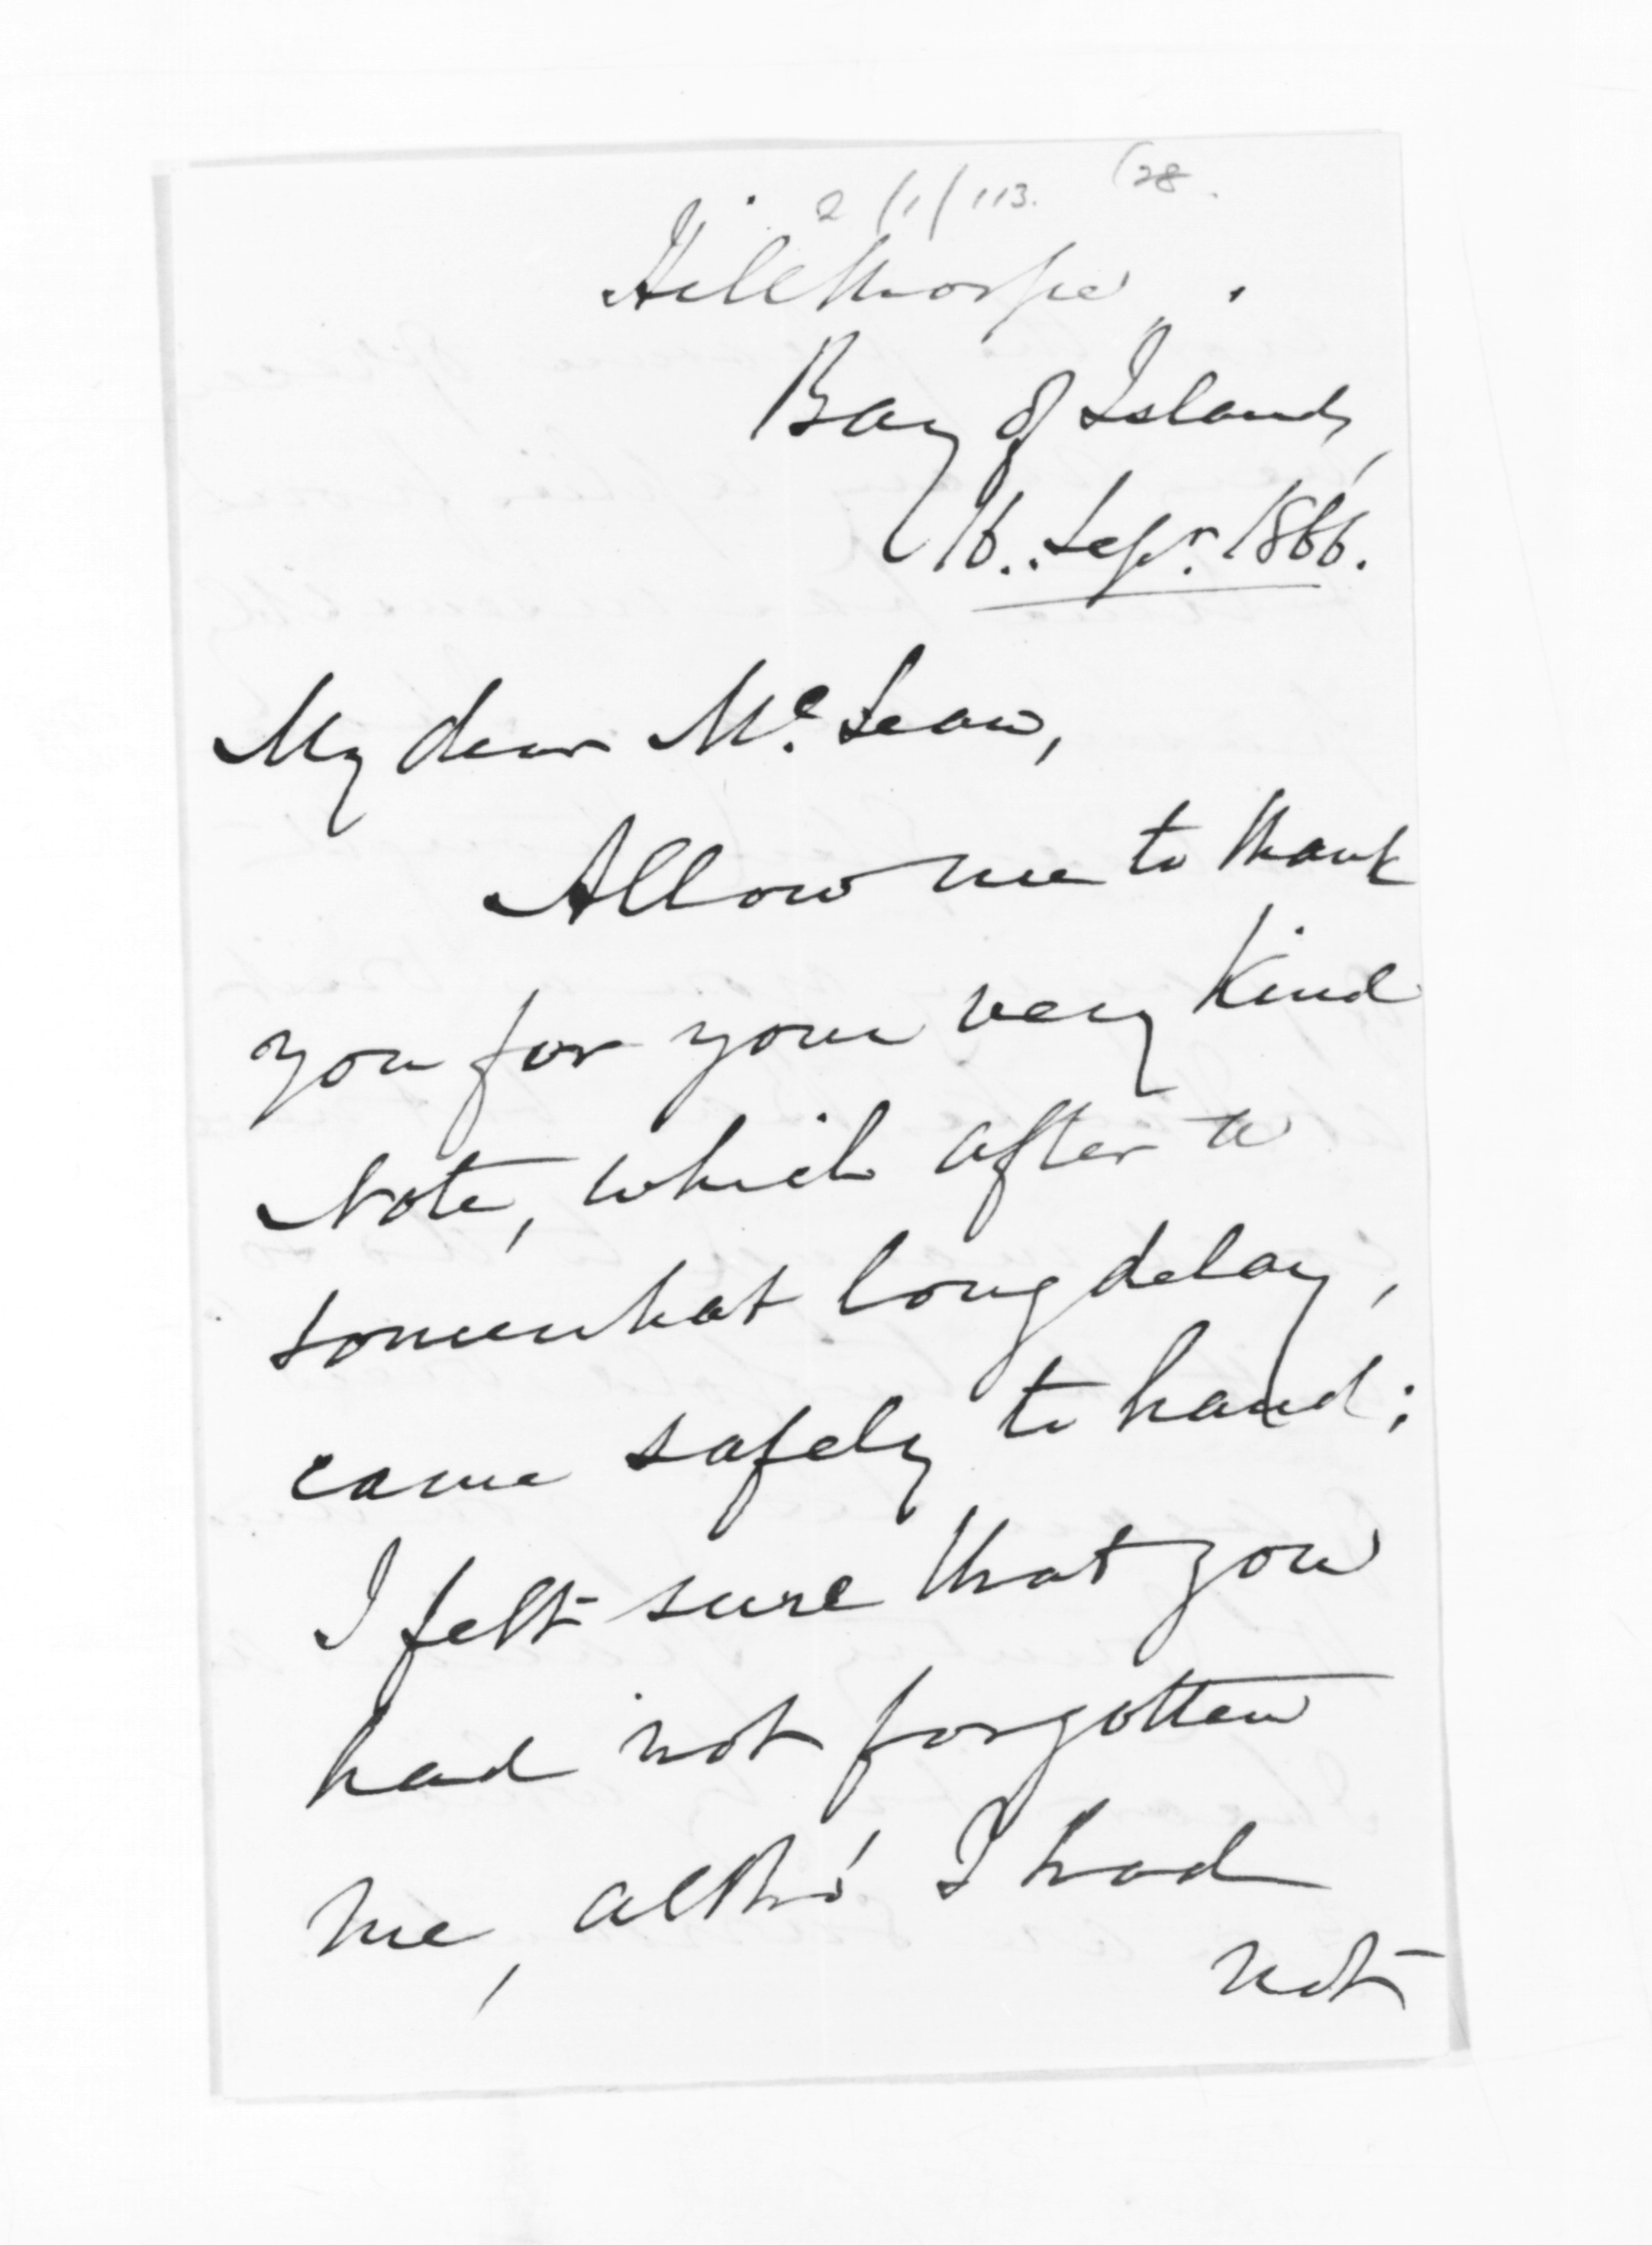 2/1/113. (28.
Hillthorpe.
Bay of Islands,
16. Sepr. 1866.
My dear Mc.Lean,
Allow me to thank
you for your very kind
Note, which after a
somewhat long delay,
came safely to hand;
I felt sure that you
had not forgotten
me, altho' I had
not